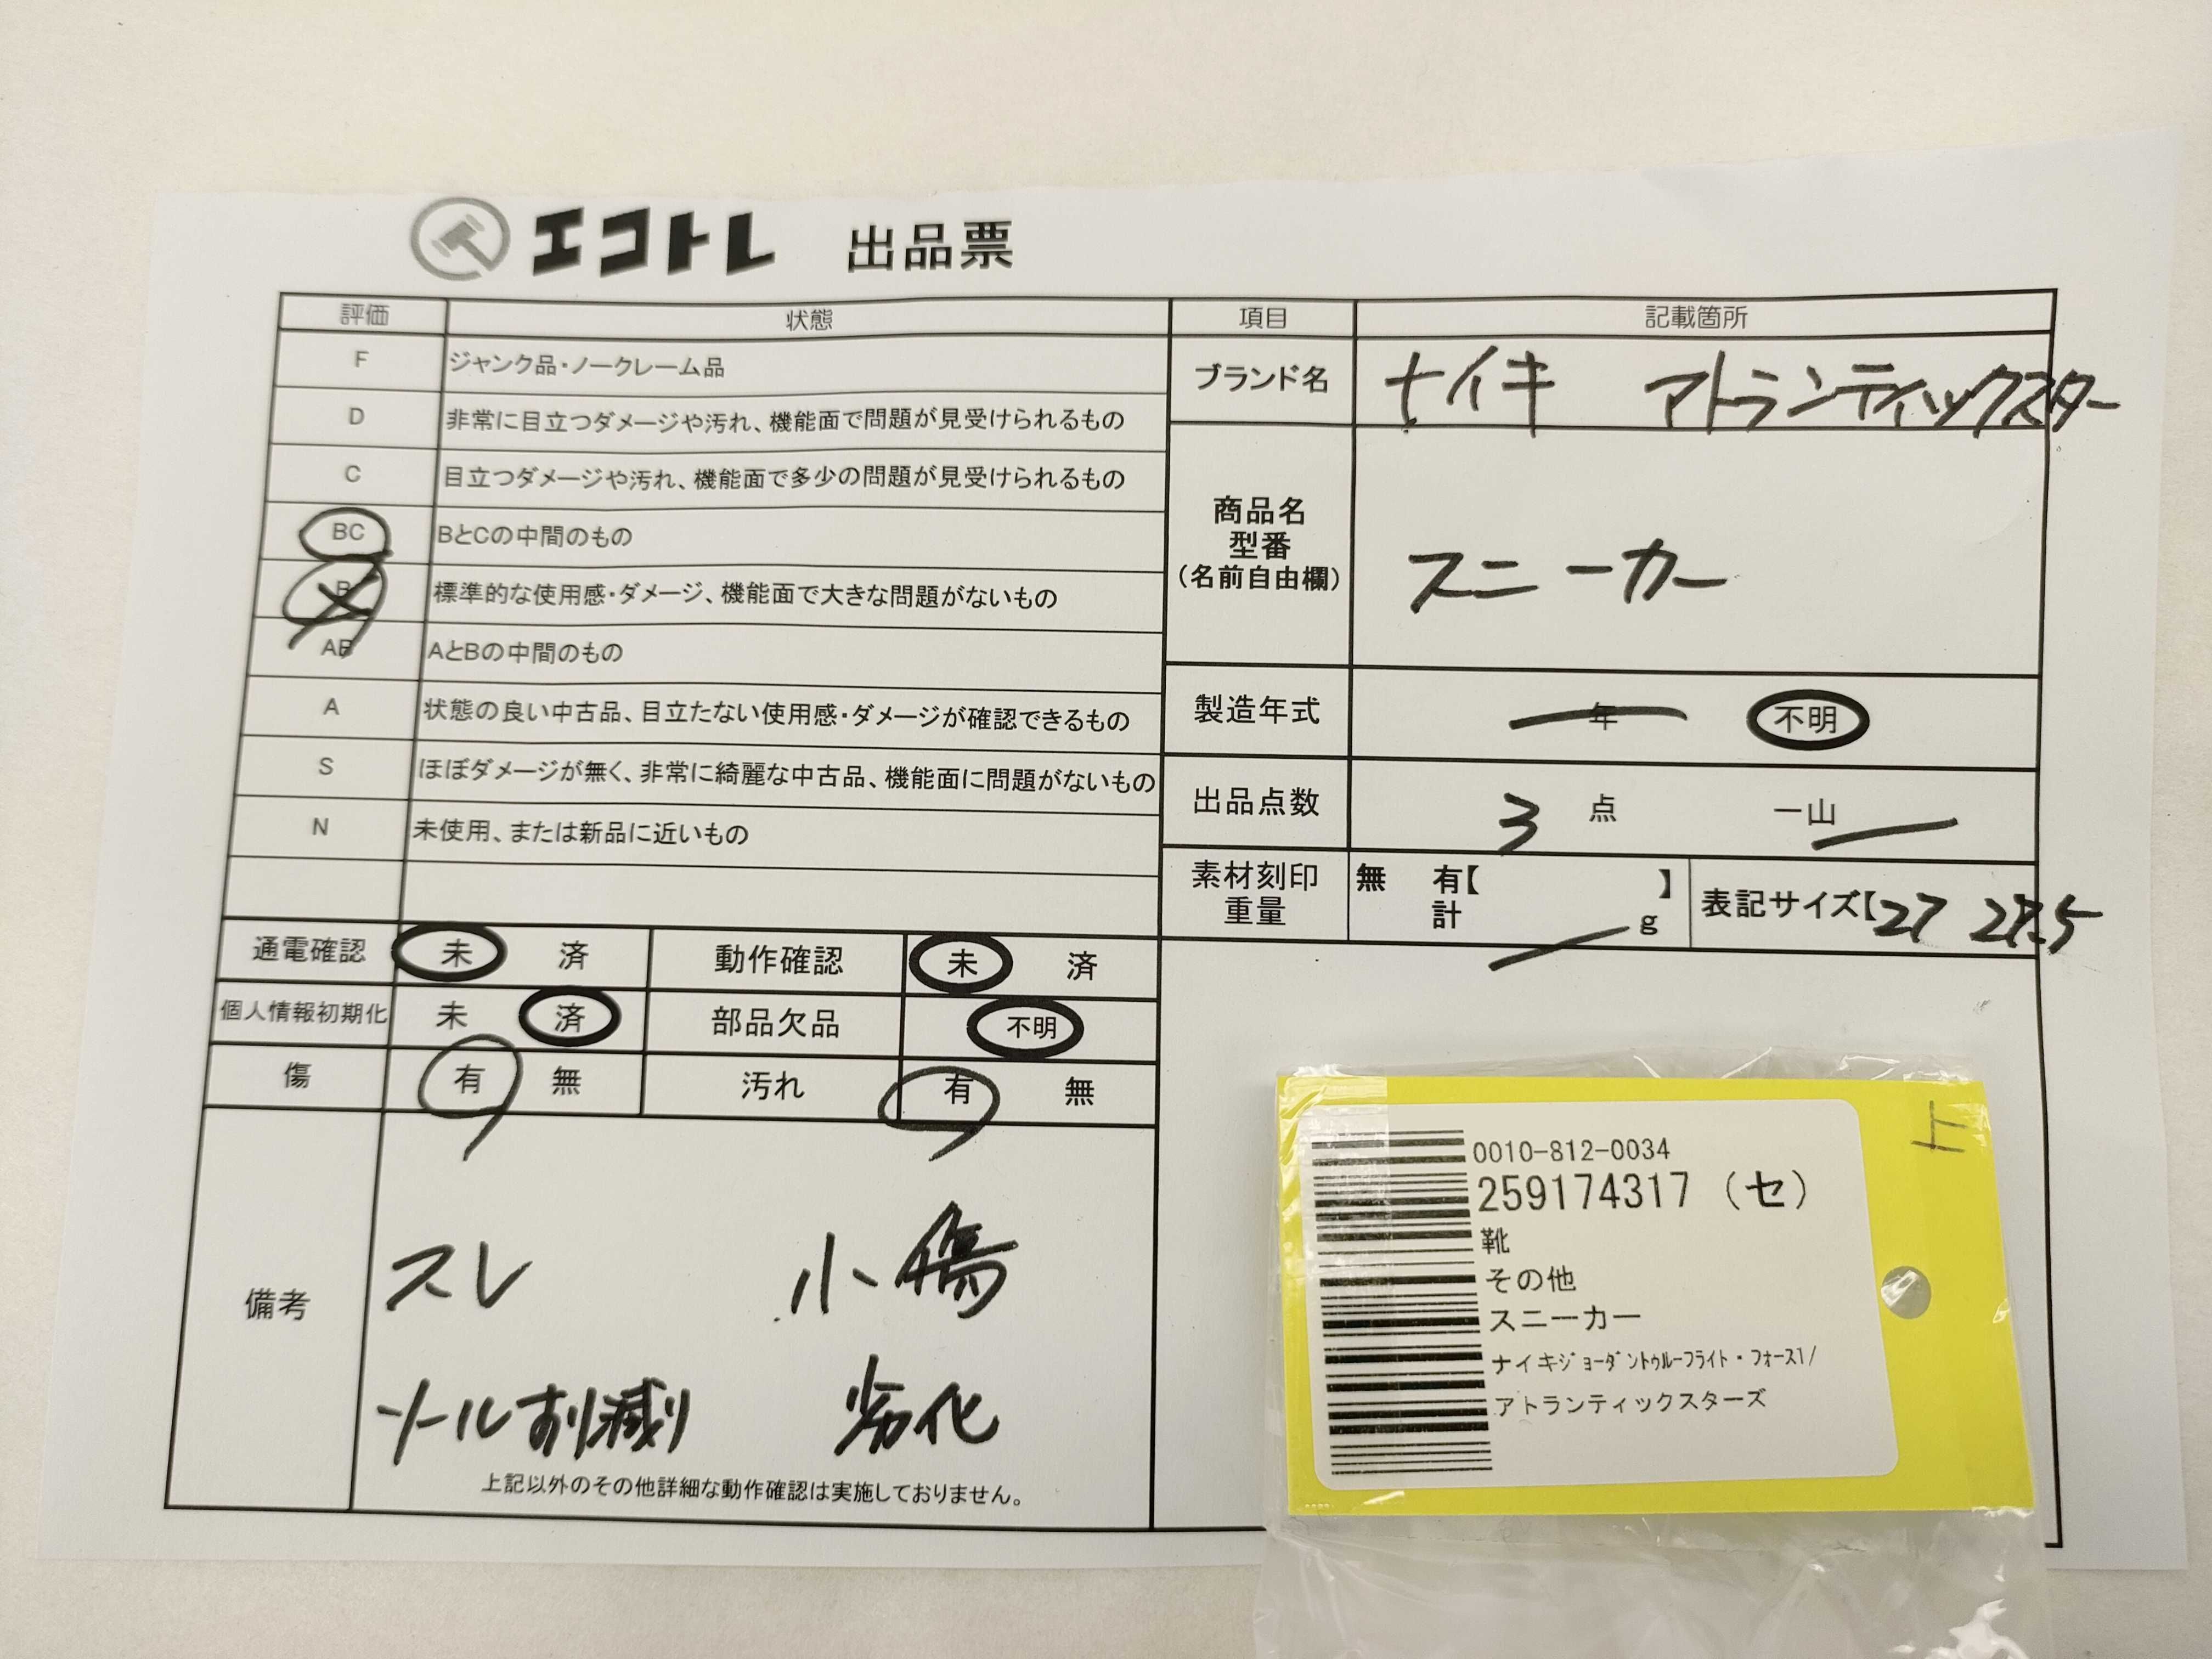 エコトレ 出品票
評価 状態 項目 記載箇所
F ジャンク品・ノークレーム品
D 非常に目立つダメージや汚れ、機能面で問題が見受けられるもの
C 目立つダメージや汚れ、機能面で多少の問題が見受けられるもの
BC BとCの中間のもの
B 標準的な使用感・ダメージ、機能面で大きな問題がないもの
AB AとBの中間のもの
A 状態の良い中古品、目立たない使用感・ダメージが確認できるもの
S ほぼダメージが無く、非常に綺麗な中古品、機能面に問題がないもの
N 未使用、または新品に近いもの
ブランド名 ナイキ アトランティックスター
商品名
型番
(名前自由欄)
スニーカー
製造年式 年 不明
出品点数 3 点 一山
素材刻印 無 有【 】
重量 計 g
表記サイズ【27 27.5
通電確認 未 済 動作確認 未 済
個人情報初期化 未 済 部品欠品 不明
傷 有 無 汚れ 有 無
備考
スレ 小傷
ソール削り減り 劣化
上記以外のその他詳細な動作確認は実施しておりません。
上
0010-812-0034
259174317 (セ)
靴
その他
スニーカー
ナイキジョーダントゥルーフライト・フォース1/
アトランティックスターズ